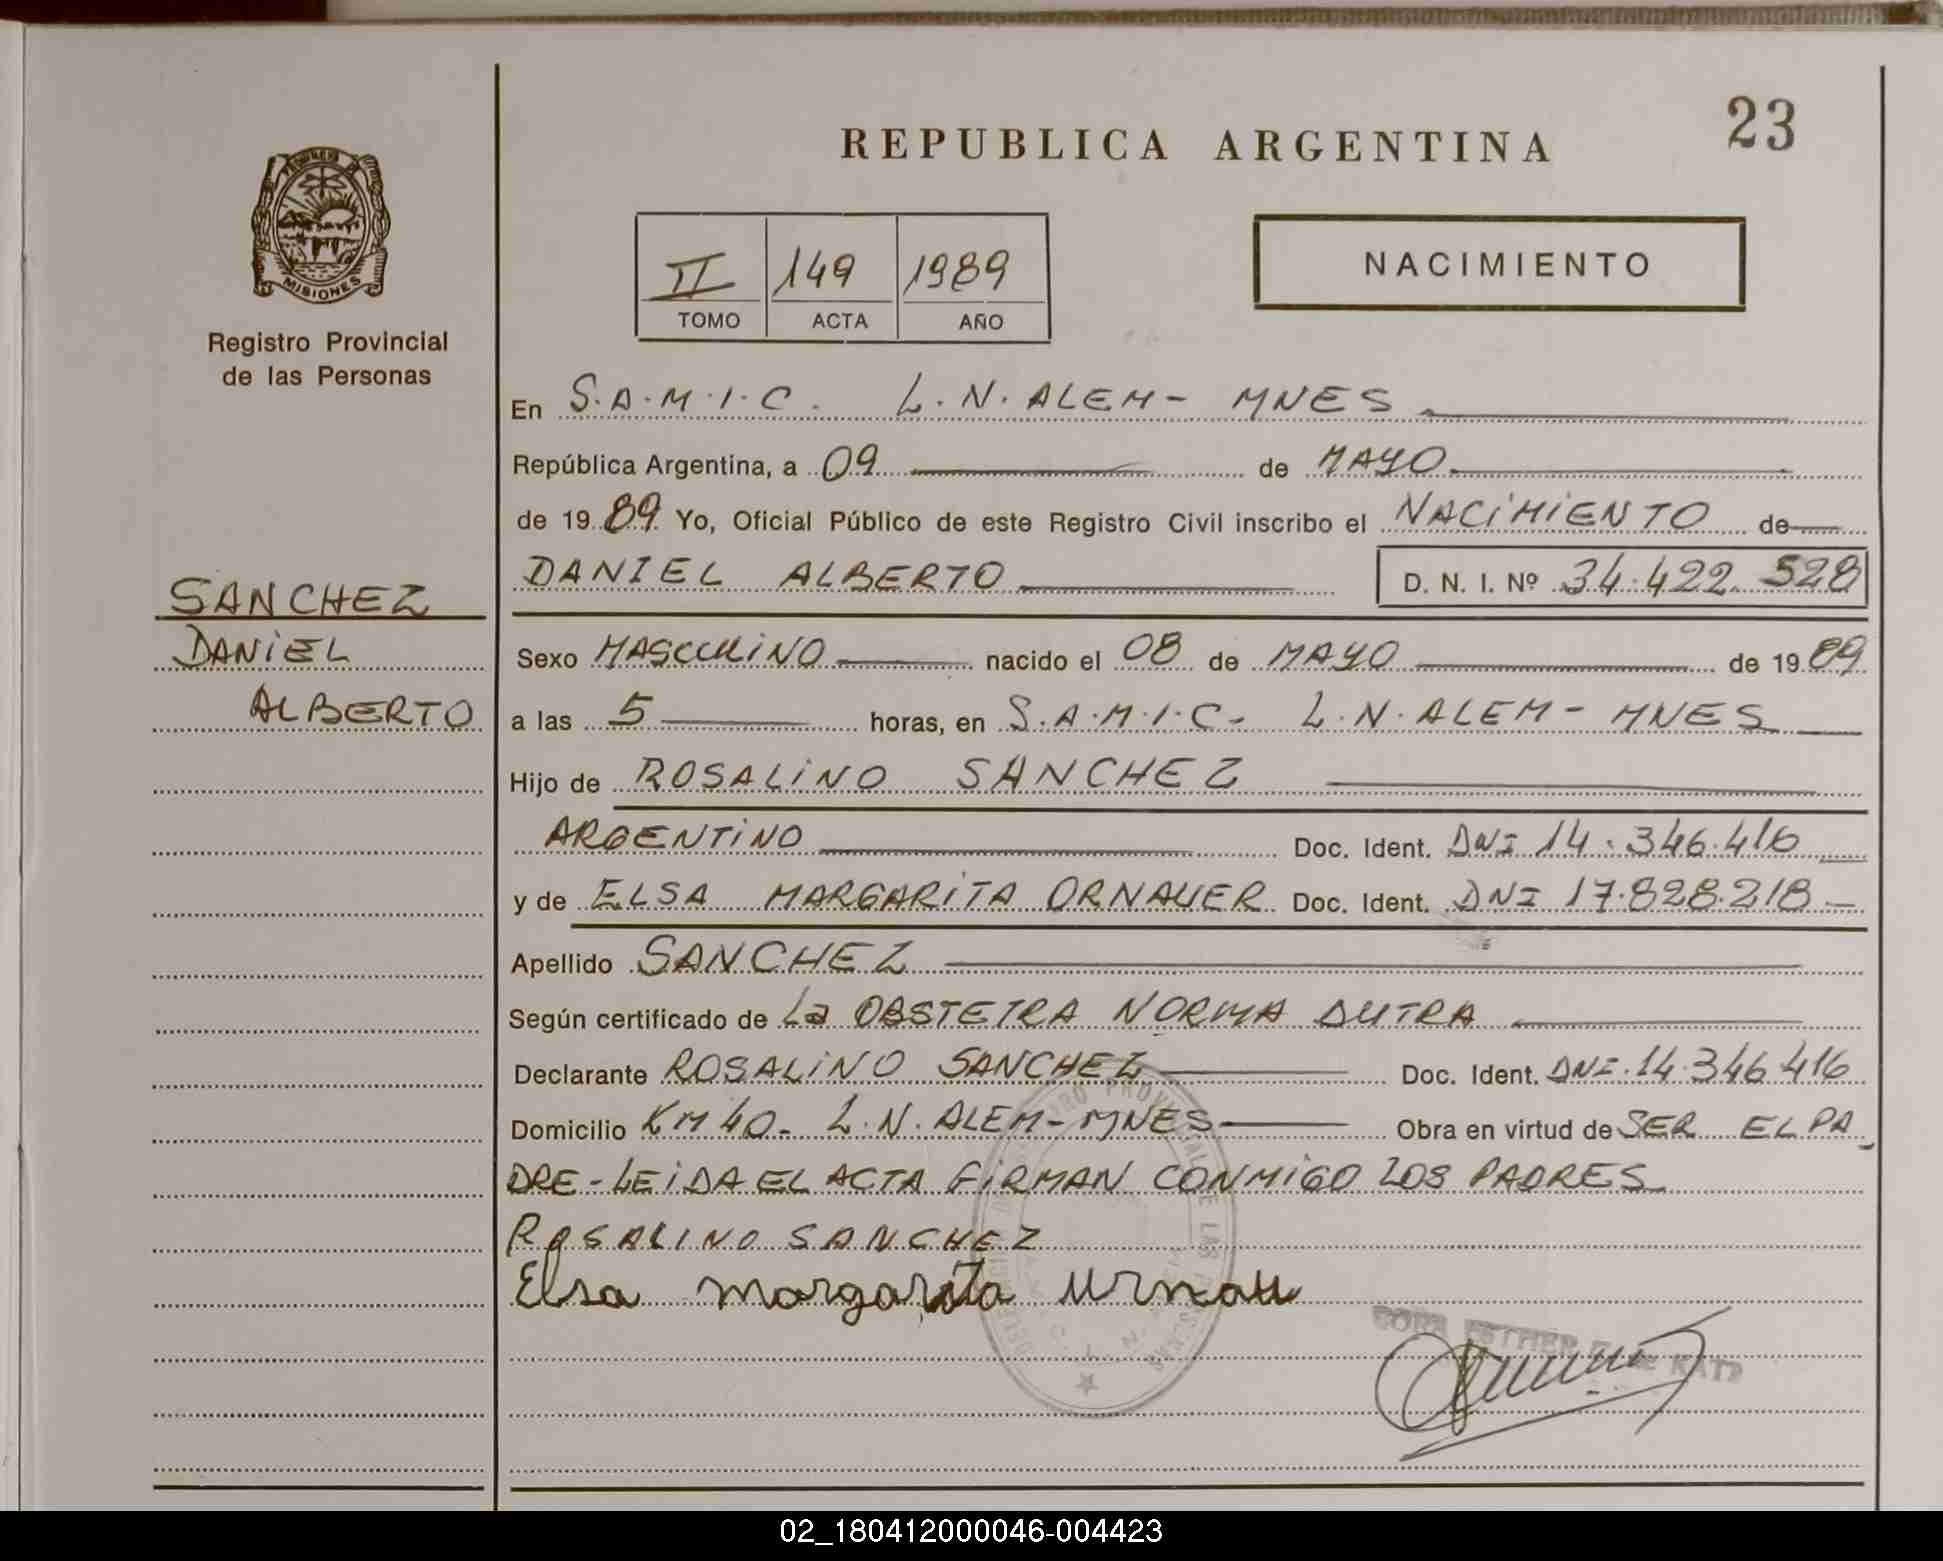 23
REPUBLICA ARGENTINA
MISIONES
Registro Provincial
de las Personas
II 149 1989
TOMO ACTA AÑO
NACIMIENTO
En S.A.M.I.C. L.N. ALEM - MNES
República Argentina, a 09 de MAYO
de 19 89 Yo, Oficial Público de este Registro Civil inscribo el NACIMIENTO de
DANIEL ALBERTO D. N. I. Nº 34.422.528
SANCHEZ
DANIEL
ALBERTO
Sexo MASCULINO nacido el 08 de MAYO de 19 89
a las 5 horas, en S.A.M.I.C. L.N. ALEM - MNES
Hijo de ROSALINO SANCHEZ
ARGENTINO Doc. Ident. DNI 14.346.416
y de ELSA MARGARITA ORNAUER Doc. Ident. DNI 17.828.218
Apellido SANCHEZ
Según certificado de La OBSTETRA NORMA DUTRA
Declarante ROSALINO SANCHEZ Doc. Ident. DNI.14.346.416
Domicilio KM 40 - L.N. ALEM - MNES Obra en virtud de SER EL PA
DRE - LEIDA EL ACTA FIRMAN CONMIGO LOS PADRES
ROSALINO SANCHEZ
Elsa Margarita
ESTHER
02_180412000046-004423